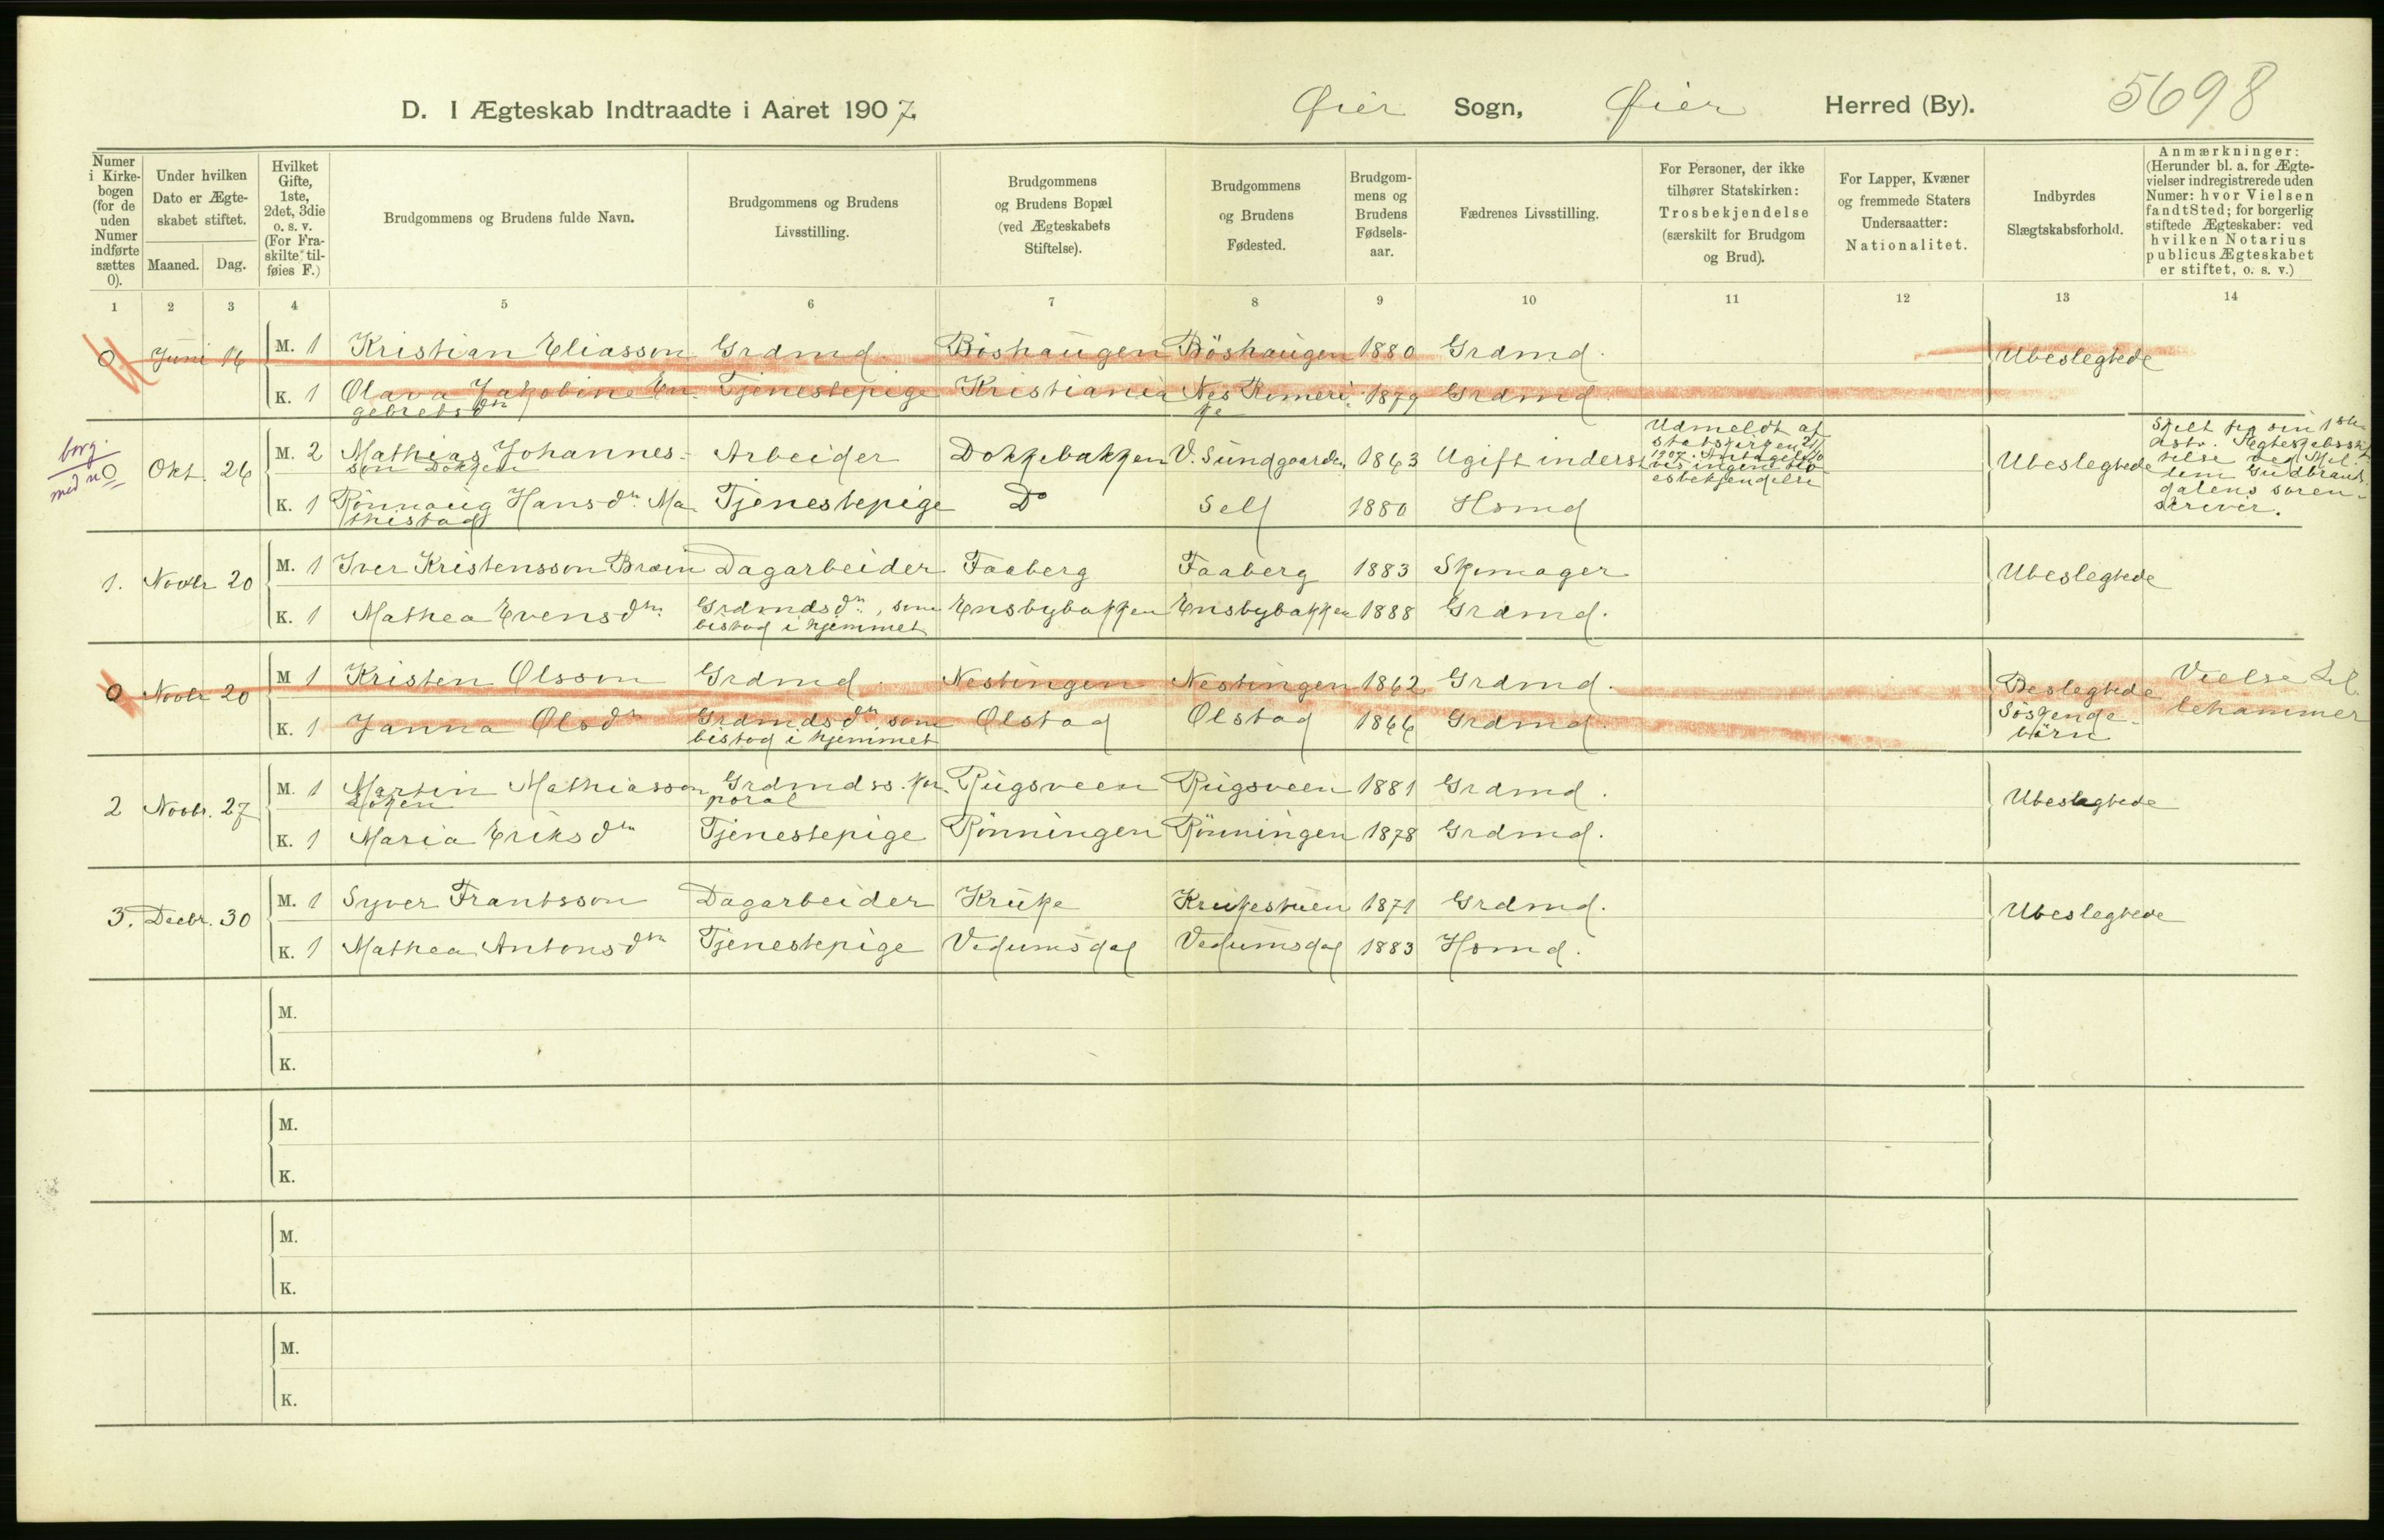 5698
D. I Ægteskab Indtraadte i Aaret 1907. Øier Sogn, Øier Herred (By).
Numer i Kirkebogen (for de uden Numer indførte sættes 0).
Under hvilken Dato er Ægteskabet stiftet.
Maaned. Dag.
Hvilket Gifte, 1ste, 2det, 3die o. s. v. (For Fraskilte tilføies F.)
Brudgommens og Brudens fulde Navn.
Brudgommens og Brudens Livsstilling.
Brudgommens og Brudens Bopæl (ved Ægteskabets Stiftelse).
Brudgommens og Brudens Fødested.
Brudgommens og Brudens Fødselsaar.
Fædrenes Livsstilling.
For Personer, der ikke tilhører Statskirken: Trosbekjendelse (særskilt for Brudgom og Brud).
For Lapper, Kvæner og fremmede Staters Undersaatter: Nationalitet.
Indbyrdes Slægtskabsforhold.
Anmærkninger: (Herunder bl. a. for Ægtevielser indregistrerede uden Numer: hvor Vielsen fandt Sted; for borgerlig stiftede Ægteskaber: ved hvilken Notarius publicus Ægteskabet er stiftet, o. s. v.)
1 2 3 4 5 6 7 8 9 10 11 12 13 14
0 Juni 16 M. 1 Kristian Eliasson Grdmd. Böshaugen Böshaugen 1880 Grdmd. Ubeslegtede
K. 1 Olava Jakobine En- Tjenestepige Kristiania Nes Romeri- 1879 Grdmd.
gebretsdtr ke
borg. med n 0 Okt. 26 M. 2 Mathias Johannes- Arbeider Dokkebakken V. Sundgaarden 1863 Ugift inderst Udmeldt af statskirken 1907. Ubeslegtede
son Dokken
Skilt fra sin 1ste
K. 1 Rönnaug Hansdtr. Ma- Tjenestepige Do Sell 1880 Hsmd
thistad
dalens soren-
skriver.
1. Novbr 20 M. 1 Iver Kristensson Bræin Dagarbeider Faaberg Faaberg 1883 Skomager Ubeslegtede
K. 1 Mathea Evensdtr. Grdmdsdtr., som Ensbybakken Ensbybakken 1888 Grdmd.
bistod i hjemmet
0 Novbr 20 M 1 Kristen Olsson Grdmd. Nestingen Nestingen 1862 Grdmd. Beslegtede Vielse Lil-
K. 1 Janna Olsdtr Grdmdsdtr som Olstad Olstad 1866 Grdmd. Söskende- lehammer
bistod i hjemmet börn
2 Novbr. 27 M. 1 Martin Mathiasson Grdmdss. kor- Rugsveen Rugsveen 1881 Grdmd. Ubeslegtede
poral
K. 1 Maria Eriksdtr Tjenestepige Rönningen Rönningen 1878 Grdmd.
3. Decbr. 30 M. 1 Syver Frantsson Dagarbeider Kruke Krukestuen 1871 Grdmd. Ubeslegtede
K. 1 Mathea Antonsdtr Tjenestepige Vedumsdal Vedumsdal 1883 Hsmd.
M.
K.
M.
K.
M.
K.
M.
K.